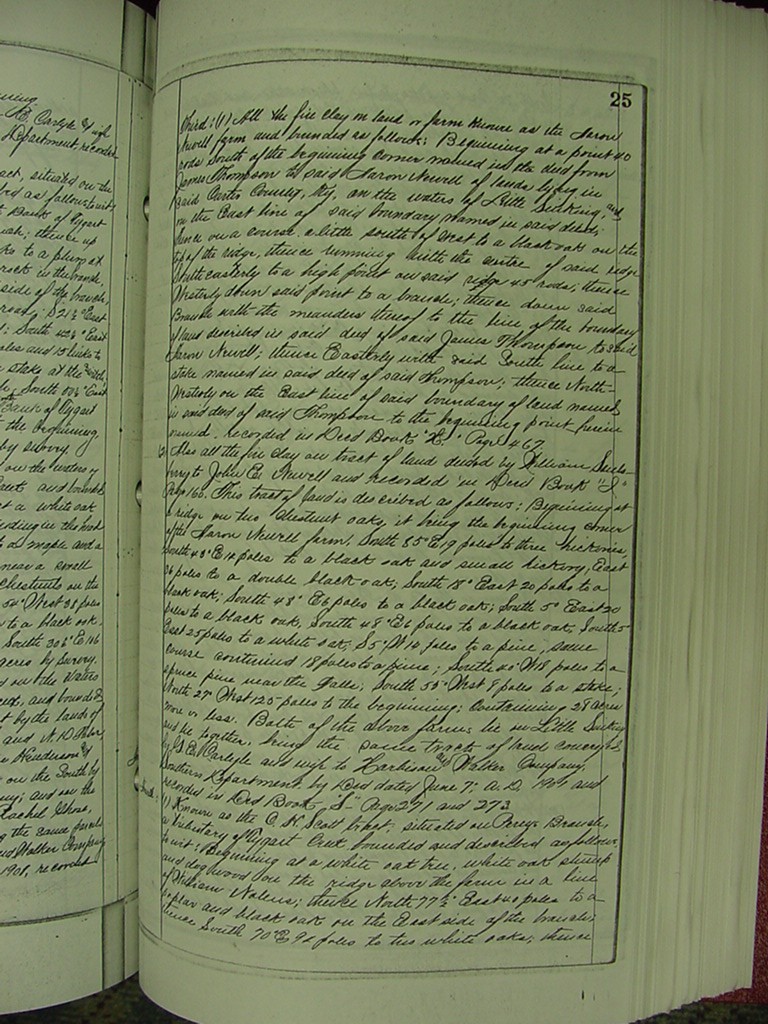 uning
E. Carlyle & wife
Department, recorded
act, situated on the
bed as follows to wit:
Bank of Tygart
oak; thence up
ks to a plum at
rock in the branch,
side of the branch,
road; S 21½ East
South 42½° East
oles and 15 links to
stake at the
South 60½° East
Bank of Tygart
the beginning,
by survey.
on the waters of
and bounded
at a white oak
to a maple and a
near a small
Chestnuts on the
West 38 poles
to a black oak,
South 30½° E 166
acres by survey.
on the waters
and bounded
t by the lands of
and N. D.
Henderson &
on the South by
and on the
Rachel
the same parcels
and Walker Company
1901, recorded
25
Third: (1) All the fire clay on land or farm known as the Aaron
Newell farm and bounded as follows: Beginning at a point 40
rods South of the beginning corner named in the deed from
James Thompson to said Aaron Newell of lands lying in
said Carter County, Ky, on the waters of Little Sinking, and
on the East line of said boundary named in said deed;
thence on a course a little south of West to a black oak on the
top of the ridge, thence running with the centre of said ridge
South easterly to a high point on said ridge 45 rods; thence
Westerly down said point to a branch; thence down said
Branch with the meanders thereof to the line of the boundary
of land described in said deed of said James Thompson to said
Aaron Newell; thence Easterly with said South line to a
stake named in said deed of said Thompson; thence North-
Westerly on the East line of said boundary of land named
in said deed of said Thompson to the beginning point herein
named, recorded in Deed Book "H." Page 467.
(2) Also all the fire clay on tract of land deeded by William
to John E. Newell and recorded in Deed Book "I"
Page 160. This tract of land is described as follows: Beginning at
a ridge on two chestnut oaks, it being the beginning corner
of the Aaron Newell farm, South 85° E 19 poles to three hickories,
South 48° E 14 poles to a black oak and small hickory, East
26 poles to a double black oak; South 18° East 20 poles to a
black oak; South 48° E 6 poles to a black oak; South 5° East 20
poles to a black oak, South 48 E 6 poles to a black oak, South 5°
East 25 poles to a white oak, S 5° W 14 poles to a pine, same
course continued 18 poles to a pine; South 40° W 18 poles to a
spruce pine near the Falls; South 58° West 8 poles to a stake;
North 27° West 125 poles to the beginning; Containing 28 acres
more or less. Both of the above farms lie on Little Sinking
and lie together, being the same tract of land conveyed
by J. E. Carlyle and wife to Harbison & Walker Company,
Southern Department, by Deed dated June 7" A. D. 1901 and
recorded in Deed Book, "S" Page 271 and 273
(1) Known as the C. H. Scott tract, situated on Perrys Branch,
a tributary of Tygart Creek bounded and described as follows,
to wit: Beginning at a white oak tree, white oak stump
and dogwood on the ridge above the farm in a line
of William Nolens; thence North 77½° East 40 poles to a
poplar and black oak on the East side of the branch;
thence South 70° E 92 poles to two white oaks; thence